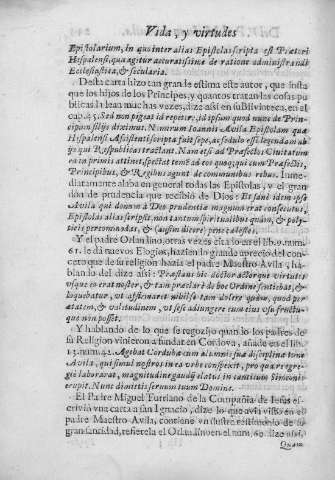 Vida, y virtudes
Epistolarium, in quo inter alias Epistolas scripta est Prætori
Hispalensi, qua agitur accuratissime de ratione administrandi
Ecclesiastica, & secularia.
Desta carta hizo tan grande estima este autor, que insta
que los hijos de los Principes, y quantos tratan las cosas pu-
blicas la lean muchas vezes, dize assi en su Biblioteca, en el
cap. 45. Sed non pigeat id repetere, id ipsum quod nunc de Prin-
cipum filijs diximus. Nimirum Ioannis Avila Epistolam quæ
Hispalensi Assistenti scripta fuit sæpe, ac sedulo esse legendam ab
ijs qui Respublicas tractant. Nam etsi ad Præfectos Civitatum
ea in primis attinet, spectat tamen ad eos quoque qui cum Præfectis,
Principibus, & Regibus agunt de communibus rebus. Inme-
diatamente alaba en general todas las Epistolas, y el gran
don de prudencia que recibió de Dios: Etsi ani idem ipse
Avila qui donum à Deo prudentia magnum erat consecutus,
Epistolas alias scripsit, non tantum spiritualibus quàm, & poly-
ticis personis, & (ausim dicere) penè cælestes.
Y el padre Orlandino, otras vezes citado en el lib. 9. num.
61. le dà nuevos Elogios, hazien lo grande aprecio del con-
cepto que de su religion hazia el padre Maestro Avila, ha-
blando del dize assi: Præstans hic doctor ac torque virtutis
visque eo erat noster, & tam præclarè de hoc Ordine sentiebat, &
loquebatur, ut affirmaret nihil se tam dolere quàm, quod per
ætatem, & valitudinem, ut sese adiungere cum tivu suo fructu-
que non posset.
Y hablando de lo que se regozijo quando los padres de
su Religion vinieron a fundar en Cordova, añade en el lib.
13. num. 42. Agebat Corduba cum alumnis sua disciplina tunc
Avila, qui simul nostros in ea urbe conspexit, pro qua egre-
giè laborarat, magnitudine gaudij elatus in canticum Simeonis
erupit. Nunc dimittis servum tuum Domine.
El Padre Miguel Turriano de la Compañia de Iesus es-
crivió vna carta a san Ignacio, dize lo que avia visto en el
padre Maestro Avila, contiene vn ilustre testimonio de su
gran santidad, refierela el Orlandino en el num. 60. dize assi,
Quam